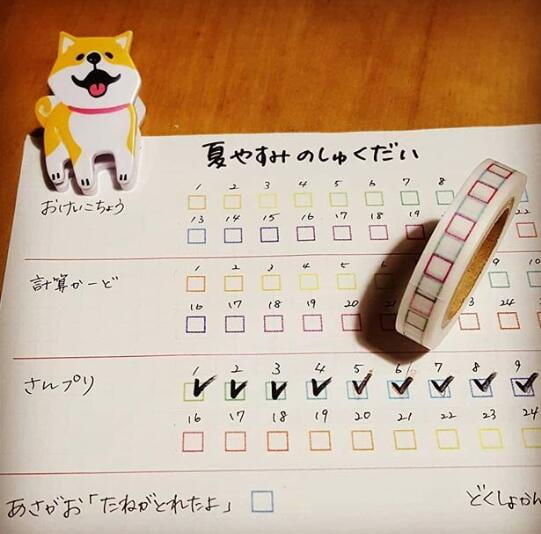 夏やすみのしゅくだい
1 2 3 4 5 6 7 8
おけいこちょう
13 14 15 16 17 18 19 22
1 2 3 4 5 6 9 10
計算かーど
16 17 18 19 20 3 24
1 2 3 4 5 6 7 8 9
さんプリ
16 17 18 19 20 21 22 23 24
あさがお「たねがとれたよ」 どくしょかん